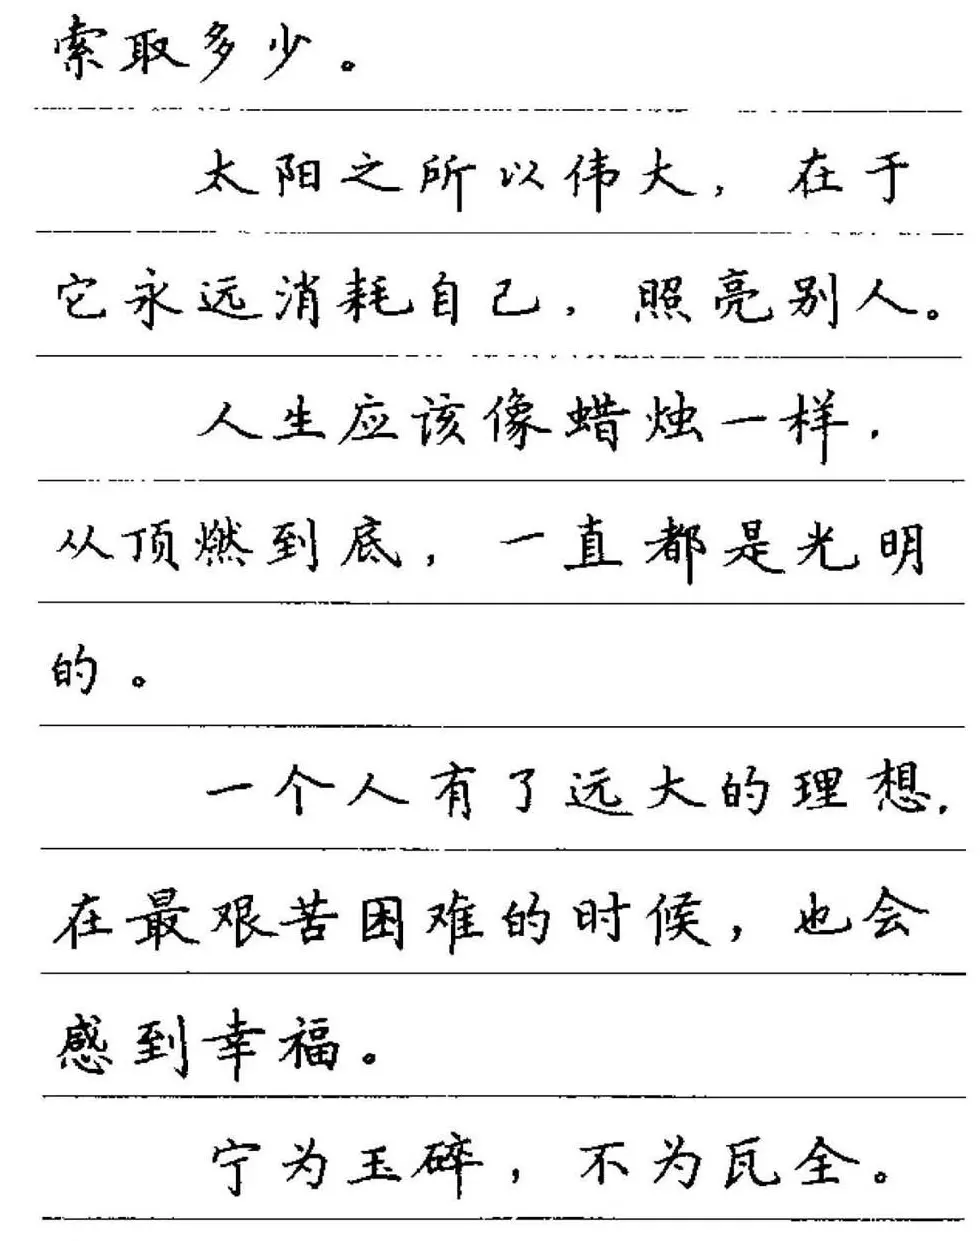 索取多少。
太阳之所以伟大，在于
它永远消耗自己，照亮别人。
人生应该像蜡烛一样，
从顶燃到底，一直都是光明
的。
一个人有了远大的理想，
在最艰苦困难的时候，也会
感到幸福。
宁为玉碎，不为瓦全。